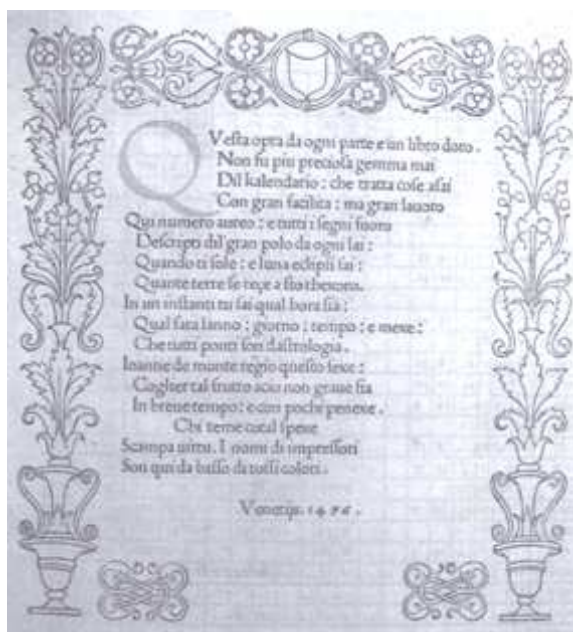 QVesta opra da ogni parte e un libro doro.
Non fu piu preciosa gemma mai
Dil kalendario: che tratta cose asai
Con gran facilita: ma gran lauoro
Qui numero aureo: e tutti i segni fuoro
Descripti dil gran polo da ogni lai:
Quando il sole: e luna eclipsi fai:
Quante terre se rece a sto thexoro.
In un instanti tu sai qual hora sia:
Qual sara lanno: giorno: tempo: e mexe:
Che tutti ponti son dastrologia.
Ioanne de monte regio questo fexe:
Coglier tal frutto acio non graue sia
In breue tempo: e con pochi penexe.
Chi teme cotal spexe
Scampa uirtu. I nomi di impressori
Son qui da basso di rossi colori.
Venetijs. 1476.